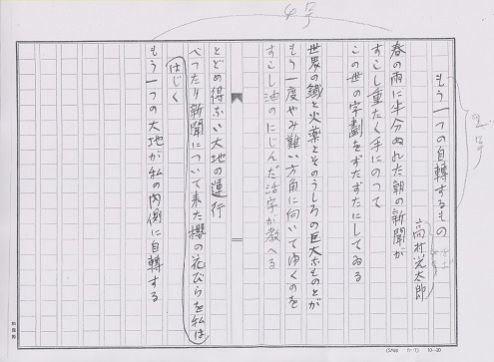 4号
2号
もう一つの自轉するもの
高村光太郎
春の雨に半分ぬれた朝の新聞が
すこし重たく手にのつて
この世の字劃をずたずたにしてゐる
世界の鐵と火薬とそのうしろの巨大なものとが
もう一度やみ難い方角に向いてゆくのを
すこし油のにじんだ活字が教へる
とどめ得ない大地の運行
べつたり新聞について来た櫻の花びらを私は
はじく
もう一つの大地が私の内側に自轉する
10-20